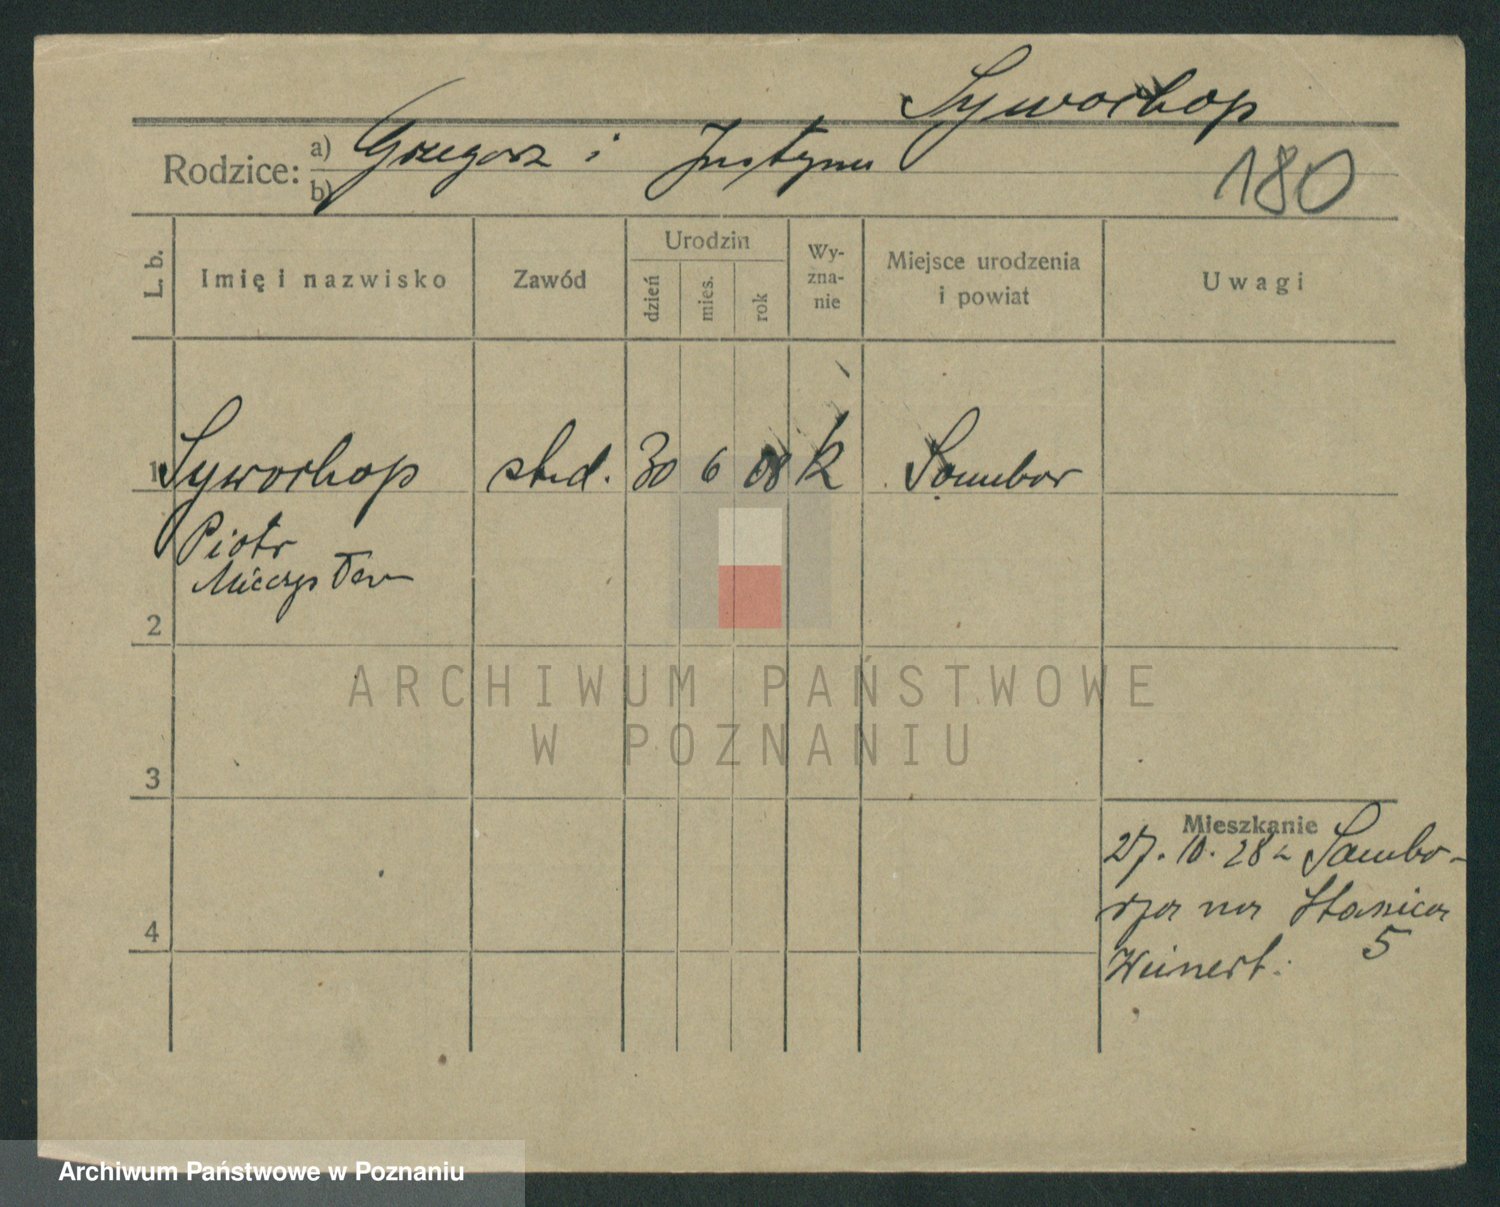 Syworhop
Rodzice: a) Grzegorz i Justyna
b)
180
L. b.
Imię i nazwisko
Zawód
Urodzin
dzień
mies.
rok
Wy-
zna-
nie
Miejsce urodzenia
i powiat
Uwagi
1 Syworhop stud. 30 6 08 k Sambor
Piotr
Mieczysław
2
ARCHIWUM PAŃSTWOWE
W POZNANIU
3
Mieszkanie
27. 10. 28 z Sambo-
rza na Stanica
5
Weinert.
4
Archiwum Państwowe w Poznaniu